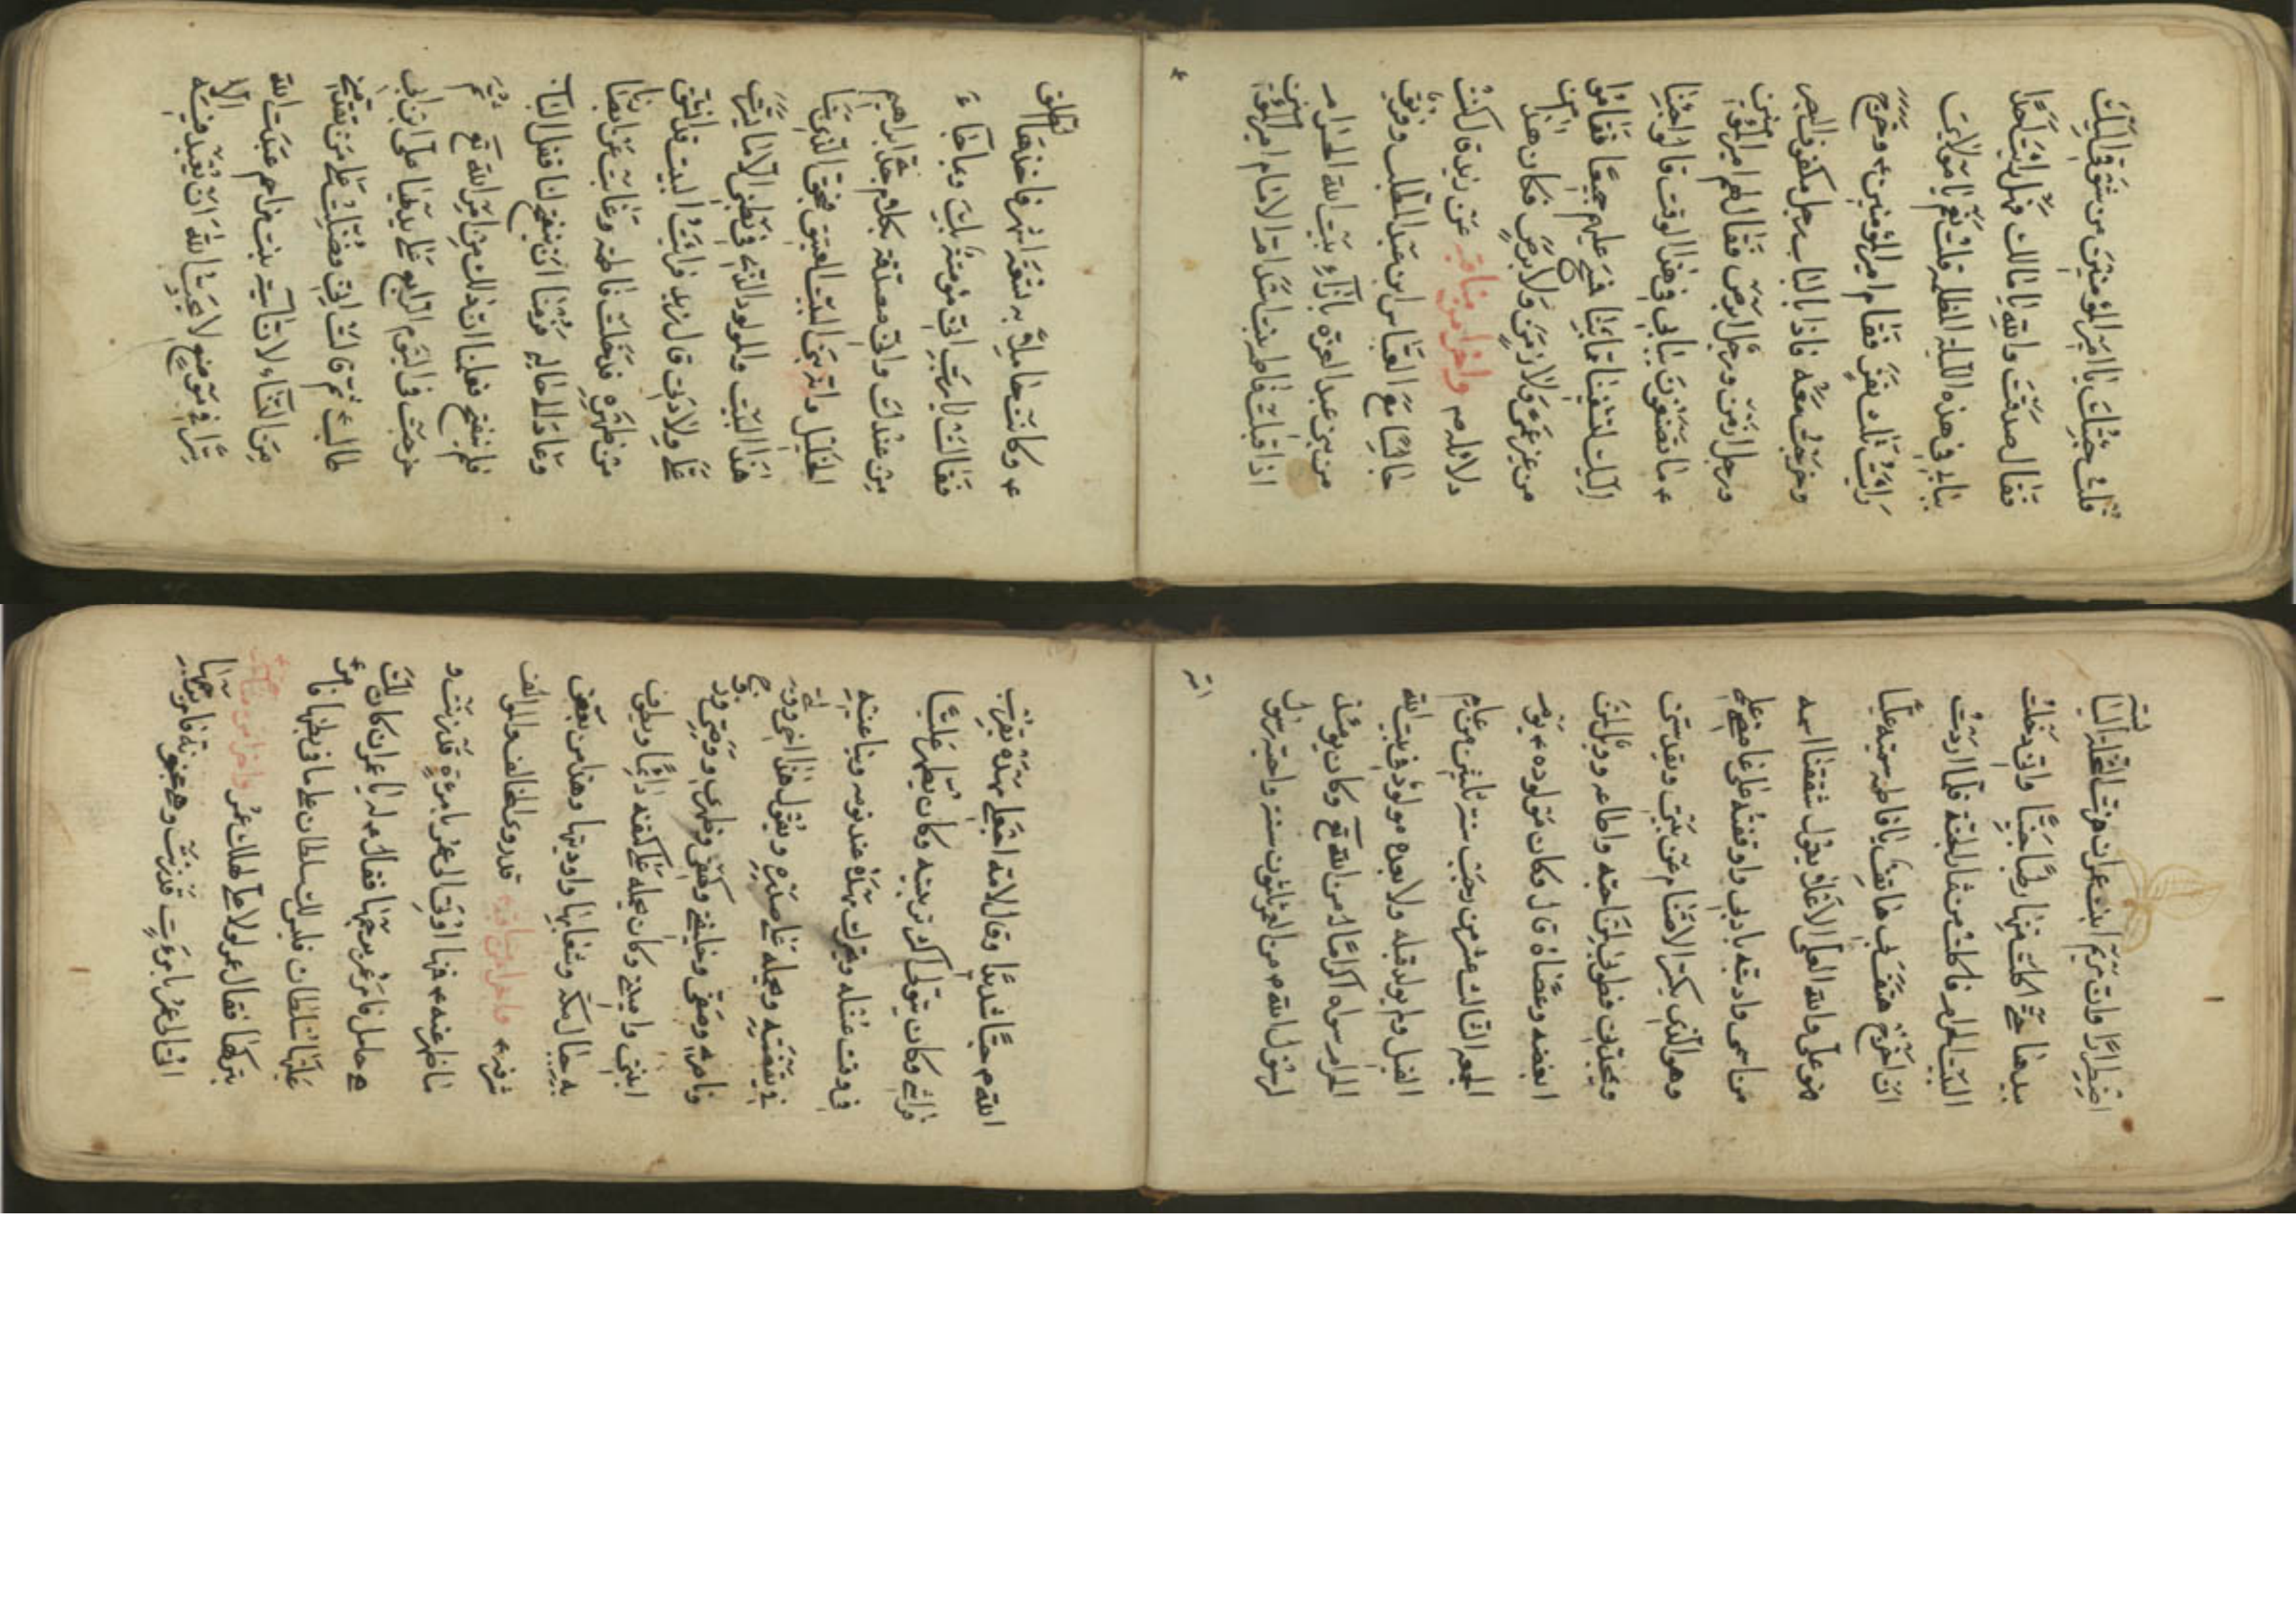 قلت جئتك يا امير المؤمنين من شوقي اليك
فقال صدقت والله يا مالك فهل رايت احدا
ببابي في هذه الليلة المظلمة قلت نعم يا مولاي
رايت ثلث نفر فقام امير المؤمنين ع وخرج
وخرجت معه فاذا بالباب رجل مكفوف البصر
ورجل ازمن ورجل ابرص فقال لهم امير المؤمنين
ع ما تصنعون ببابي في هذا الوقت قالوا جئنا
اليك لتشفينا مما بنا فمسح عليهم جميعا فقاموا
من غير عمى ولا زمن ولا برص فكان هذا من
دلائله ع واخر من مناقبه عن يزيد قال كنت
جالسا مع العباس ابن عبد المطلب وفريق
من بني عبد العزى بازاء بيت الله الحرام
اذ اقبلت فاطمة بنت اسد ام الامام امير المؤمنين
ع وكانت حاملة به تسعة اشهر فاخذها الطلق
فقالت يا رب اني مؤمنة بك وبما جاء
من عندك واني مصدقة بكلام جدي ابراهيم
الخليل وانه بنى البيت العتيق فبحق الذي بنا
هذا البيت والمولود الذي في بطني الا ما يسرت
علي ولادتي قال يزيد فرايت البيت قد انشق
من ظهره فدخلت فاطمة وغابت عن ابصارنا
وعاد الى حاله فرمنا ان ينفتح لنا قفل الباب
فلم ينفتح فعلمنا ان ذلك من امر الله تع ثم
خرجت في اليوم الرابع على يديها علي ابن ابي
طالب ع ثم قالت اني فضلت على من تقدمني
من النساء لان اسية بنت مزاحم عبدت الله
سرا في موضع لا يحب الله ان يعبد فيه الا
اضطرارا وان مريم ابنة عمران هزت النخلة اليابسة
بيدها حتى اكلت منها رطبا جنيا واني دخلت
البيت الحرام فاكلت من ثمار الجنة فلما اردت
ان اخرج هتف بي هاتف يا فاطمة سميه عليا
فهو علي والله العلي الاعلى يقول شققنا اسمه
من اسمي وادبته بادبي واوقفته على غامض علمي
وهو الذي يكسر الاصنام عن بيتي ويقدسني
ويمجدني فطوبى لمن احبه واطاعه وويل لمن
ابغضه وعصاه قال وكان مولده ع يوم
الجمعة الثالث عشر من رجب سنة ثلثين من عام
الفيل ولم يولد قبله ولا بعده مولود في بيت الله
الحرام سواه اكراما له من الله تع وكان يومئذ
لرسول الله ص من العمر ثلثون سنة واحبه رسول
الله ص حبا شديدا وقال لامه اجعلي مهده بقرب
فراشي وكان يتولى اكثر تربيته وكان يطهر عليا
في وقت غسله ويحرك مهده عند نومه ويناغيه
في يقظته ويحمله على صدره ويقول هذا اخي ووليي
وناصري وصفيي وخليفتي وكهفي وظهري ووصيي وزوج
ابنتي واميني وكان يحمله على كتفه دائما ويطوف
به جبال مكة وشعابها واوديتها وهذا من بعض
شرفه ع واخر من مناقبه قد روى المخالف والمؤالف
ما ظهر عنه ع اوتى الى عمر بامرءة قد زنت و
هي حامل فامر عمر برجمها فقال ع له يا عمر ان كان لك
عليها سلطان فليس لك سلطان على ما في بطنها فامر
بتركها فقال عمر لولا علي لهلك عمر واخر من مناقبه
اتى الى عمر بامرءت قد زنت وهي مجنونة فامر برجمها